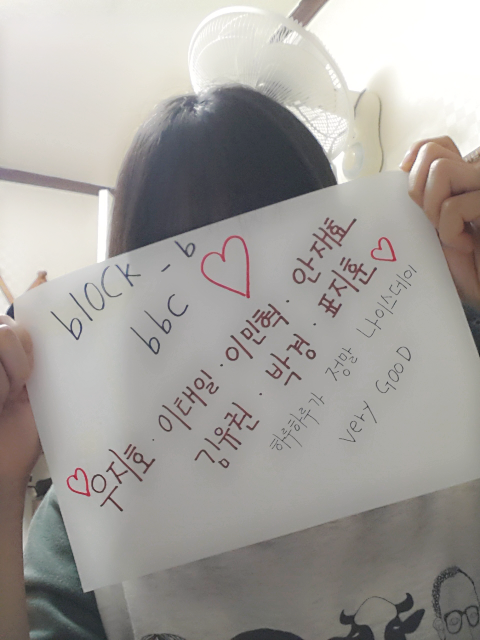 blOCK - b
bbc
우지호 · 이태일 · 이민혁 · 안재효
김유권 · 박경 · 표지훈
하루하루가 정말 나이스데이
very GOOD